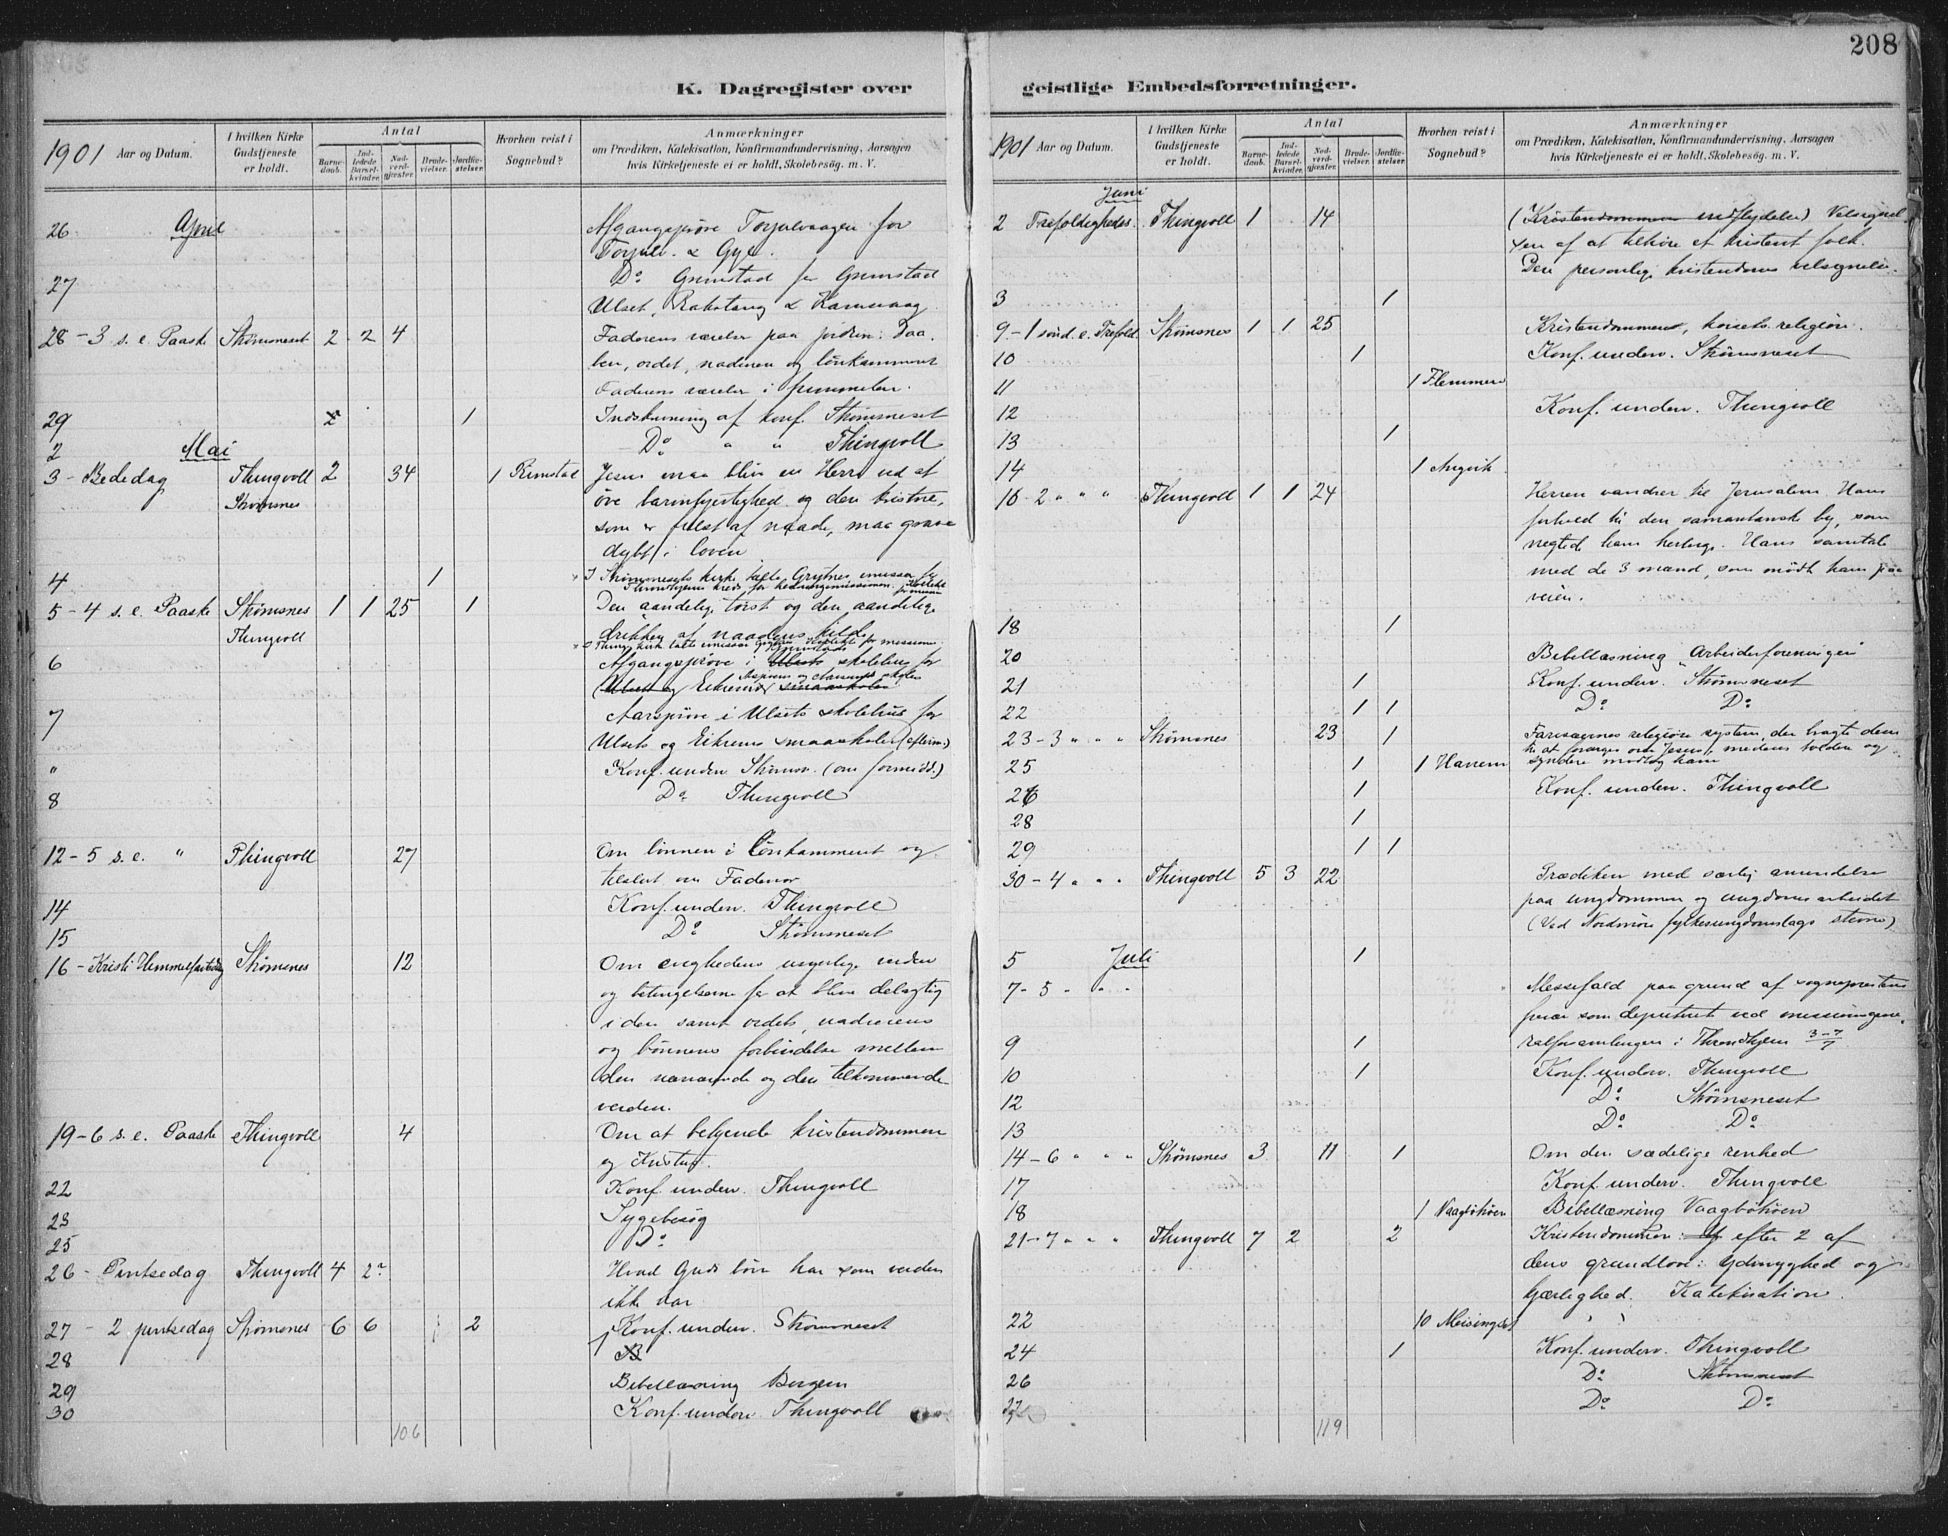 208
K. Dagregister over
geistlige Embedsforretninger.
1901 Aar og Datum.
I hvilken Kirke Gudstjeneste er holdt.
Antal
Barnedaab.
Indledede Barselkvinder.
Nadverdgjæster.
Brudevielser.
Jordfæstelser.
Hvorhen reist i Sognebud?
Anmærkninger
om Prædiken, Katekisation, Konfirmandundervisning, Aarsagen
hvis Kirketjeneste ei er holdt, Skolebesøg. m. V.
April
26 Afgangsprøve Torjulvaagen for
Torjulv. & Gyl.
27 Do Grimstad for Grimstad
Ulset, Rakstang &
28 - 3 s. e. Paaske Strømsneset 2 2 4 Faderens værelse paa jorden: Daa-
ben, ordet, nadveren og lønkammeret
Faderens værelse i himmelen.
29 1 Indskrivning af konf. Strømsneset
Mai
2 Do " " Thingvoll
3 - Bededag Thingvoll 2 34 1 Rimstad Jesus maa blive en Herre ud at
Strømsnes øve barmhjertighed og den kristne,
som er frelst af naade, maa grave
dybt i loven
4 1 I Strømsnesets kirke talte Grytnes emissær for
Throndhjems kreds for hedningemissionen.
5 - 4 s. e. Paaske Strømsnes 1 1 25 1 Den aandelige tørst og den aandelige
Thingvoll drikken af naadens kilde
6 Afgangsprøve i skolehus for
7 Aarsprøve i Ulsets skolehus for
Ulsets og Eikrems smaaskoler (efterm.)
" Konf. underv. Strømsn. (om formidd.)
8 Do Thingvoll
12 - 5 s. e. " Thingvoll 27 Om bønnen i Lønkammeret og
tilslut om Fadervor
14 Konf. underv. Thingvoll
15 Do Strømsneset
16 - Kristi Himmelfartsdag Strømsnes 12 Om evighedens usynlige verden
og betingelserne for at blive delagtig
i den samt ordets, nadverens
og bønnens forbindelse mellem
den nærværende og den tilkommende
verden.
19 - 6 s. e. Paaske Thingvoll 4 Om at bekjende kristendommen
og Kristus.
22 Konf. underv. Thingvoll
23 Sygebesøg
25 Do
26 - Pintsedag Thingvoll 4 2 Hvad Guds børn har som verden
ikke har
27 - 2 pintsedag Strømsnes 6 6 2 Konf. underv. Strømsneset
28
29 Bibellæsning Bergem
30 Konf. underv. Thingvoll
106
1901 Aar og Datum.
I hvilken Kirke Gudstjeneste er holdt.
Antal
Barnedaab.
Indledede Barselkvinder.
Nadverdgjæster.
Brudevielser.
Jordfæstelser.
Hvorhen reist i Sognebud?
Anmærkninger
om Prædiken, Katekisation, Konfirmandundervisning, Aarsagen
hvis Kirketjeneste ei er holdt, Skolebesøg. m. V.
Juni
2 Trefoldigheds. Thingvoll 1 14 (Kristendommens indflydelse) Velsignel-
sen af at tilhøre et kristent folk.
Den personlige kristendoms velsignelse.
3 1
9 - 1 sønd. e. Trefold. Strømsnes 1 1 25 Kristendommen, korsets religion.
10 1 Konf. underv. Strømsneset
11 1 Flemmen
12 Konf. underv. Thingvoll
13 1
14 1 Angvik
16 - 2 " " " Thingvoll 1 1 24 Herren vandrer til Jerusalem Hans
forhold til den samaritanske by, som
negted ham herberge. Hans samtale
med de 3 mænd, som mødte ham paa
veien.
18 1
20 Bibellæsning "Arbeiderforeningen"
21 1 Konf. underv. Strømsneset
22 1 1 Do Do
23 - 3 " " " Strømsnes 23 1 Farisæernes religiøse system, der bragte dem
til at forarges over Jesus, medens toldere og
25 1 1 Hanem syndere modtog ham
26 1 Konf. underv. Thingvoll
28 1
29 1 1
30 - 4 " " " Thingvoll 5 3 22 Prædiken med særlig anvendelse
paa ungdommen og ungdomsarbeidet
(Ved Nordmøre fylkesungdomslags stevne)
Juli
5 1
7 - 5 " " " Messefald paa grund af sogneprestens
færd som deputeret ved missionsgene-
9 1 ralforsamlingen i Throndhjem 3-7/7
10 1 Konf. underv. Thingvoll
12 Do Strømsneset
13 Do Do
14 - 6 " " " Strømsnes 3 11 1 Om den sædelige renhed
17 Konf. underv. Thingvoll
18 1 Vaagbøtøen Bibellæsning Vaagbøtøen
21 - 7 " " " Thingvoll 7 2 2 Kristendommen: efter 2 af
dens grundlove: Ydmyghed og
kjærlighed. Katekisation.
22 10 Meisingset
24 1 Konf. underv. Thingvoll
26 Do Strømsneset
27 Do Do
119